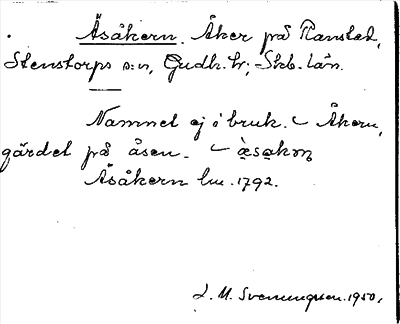 Åsåkern. Åker på Ranstad,
Stenstorps s:n, Gudh. hr; Skb. län.
Namnet ej i bruk. Åkern,
gärdet på åsen.
Åsåkern lm. 1792.
L. M. Svenungsson. 1950.